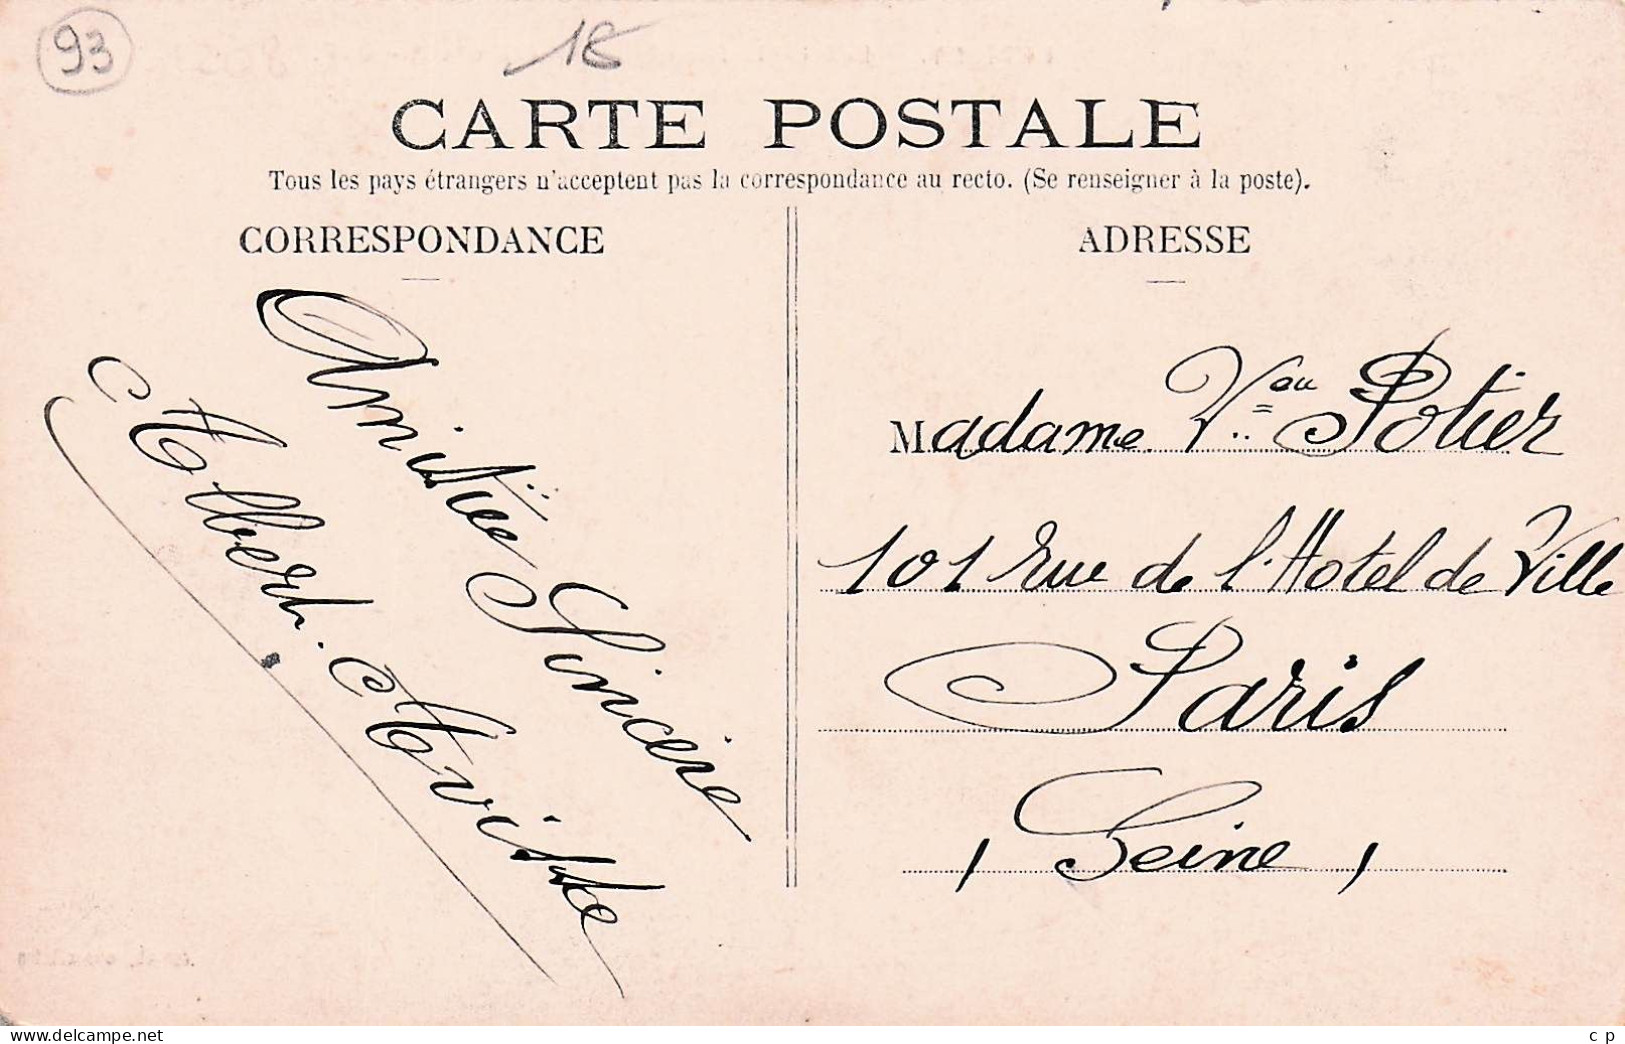 93
1€
CARTE POSTALE
Tous les pays étrangers n'acceptent pas la correspondance au recto. (Se renseigner à la poste).
CORRESPONDANCE
Amitiée Sincère
Albert
ADRESSE
Madame Vve Potier
101 Rue de l'Hotel de Ville
Paris
(Seine)
www.delcampe.net
c p